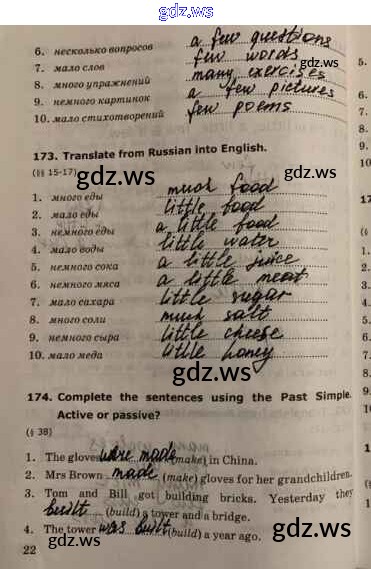 gdz.ws
6. несколько вопросов a few questions
7. мало слов few words
8. много упражнений many exercises
9. немного картинок a few pictures
10. мало стихотворений few poems
173. Translate from Russian into English.
(§§ 15-17)
gdz.ws gdz.ws
1. много еды much food
2. мало еды little food
3. немного еды a little food
4. мало воды little water
5. немного сока a little juice
6. немного мяса a little meat
7. мало сахара little sugar
8. много соли much salt
9. немного сыра little cheese
10. мало меда little honey
gdz.ws
174. Complete the sentences using the Past Simple.
Active or passive?
(§ 38)
1. The gloves were made (make) in China.
2. Mrs Brown made (make) gloves for her grandchildren.
3. Tom and Bill got building bricks. Yesterday they
built (build) a tower and a bridge.
4. The tower was built (build) a year ago.
22
gdz.ws gdz.ws
5.
6.
7.
8.
9.
10.
17
(§
1.
2.
3.
4.
gdz.ws